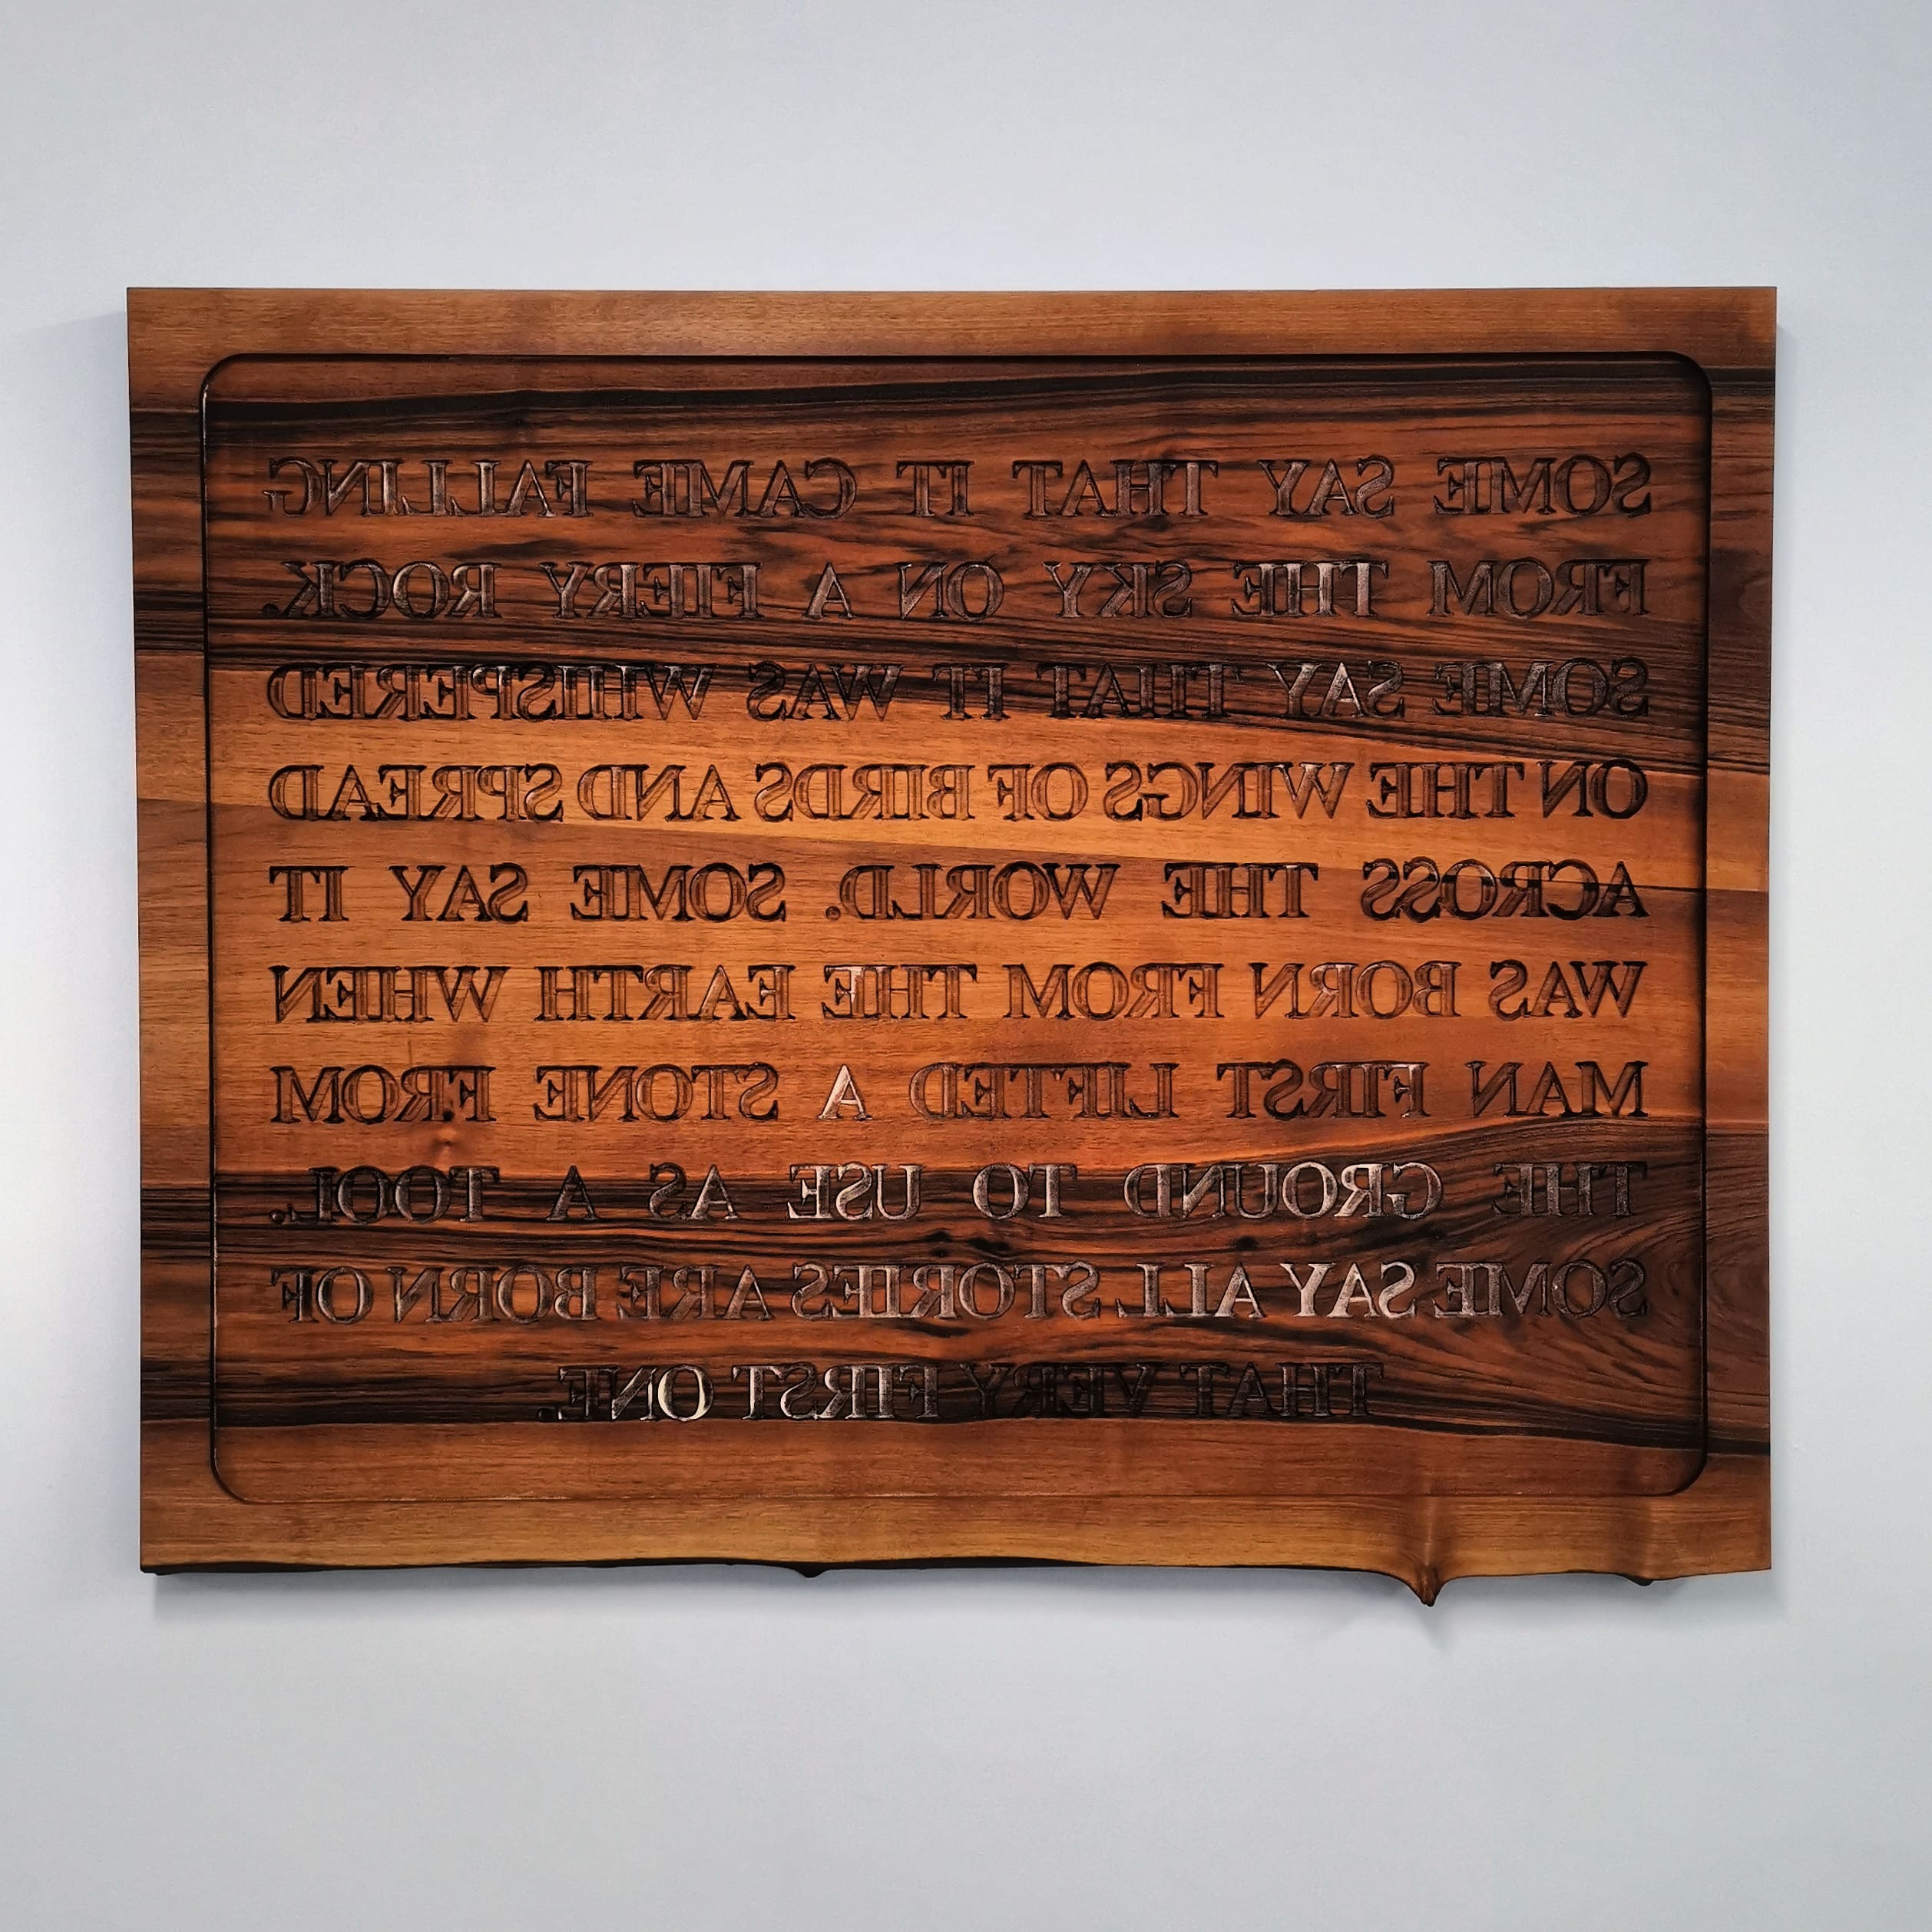 SOME SAY THAT IT CAME FALLING
FROM THE SKY ON A FIERY ROCK.
SOME SAY THAT IT WAS WHISPERED
ON THE WINGS OF BIRDS AND SPREAD
ACROSS THE WORLD. SOME SAY IT
WAS BORN FROM THE EARTH WHEN
MAN FIRST LIFTED A STONE FROM
THE GROUND TO USE AS A TOOL.
SOME SAY ALL STORIES ARE BORN OF
THAT VERY FIRST ONE.